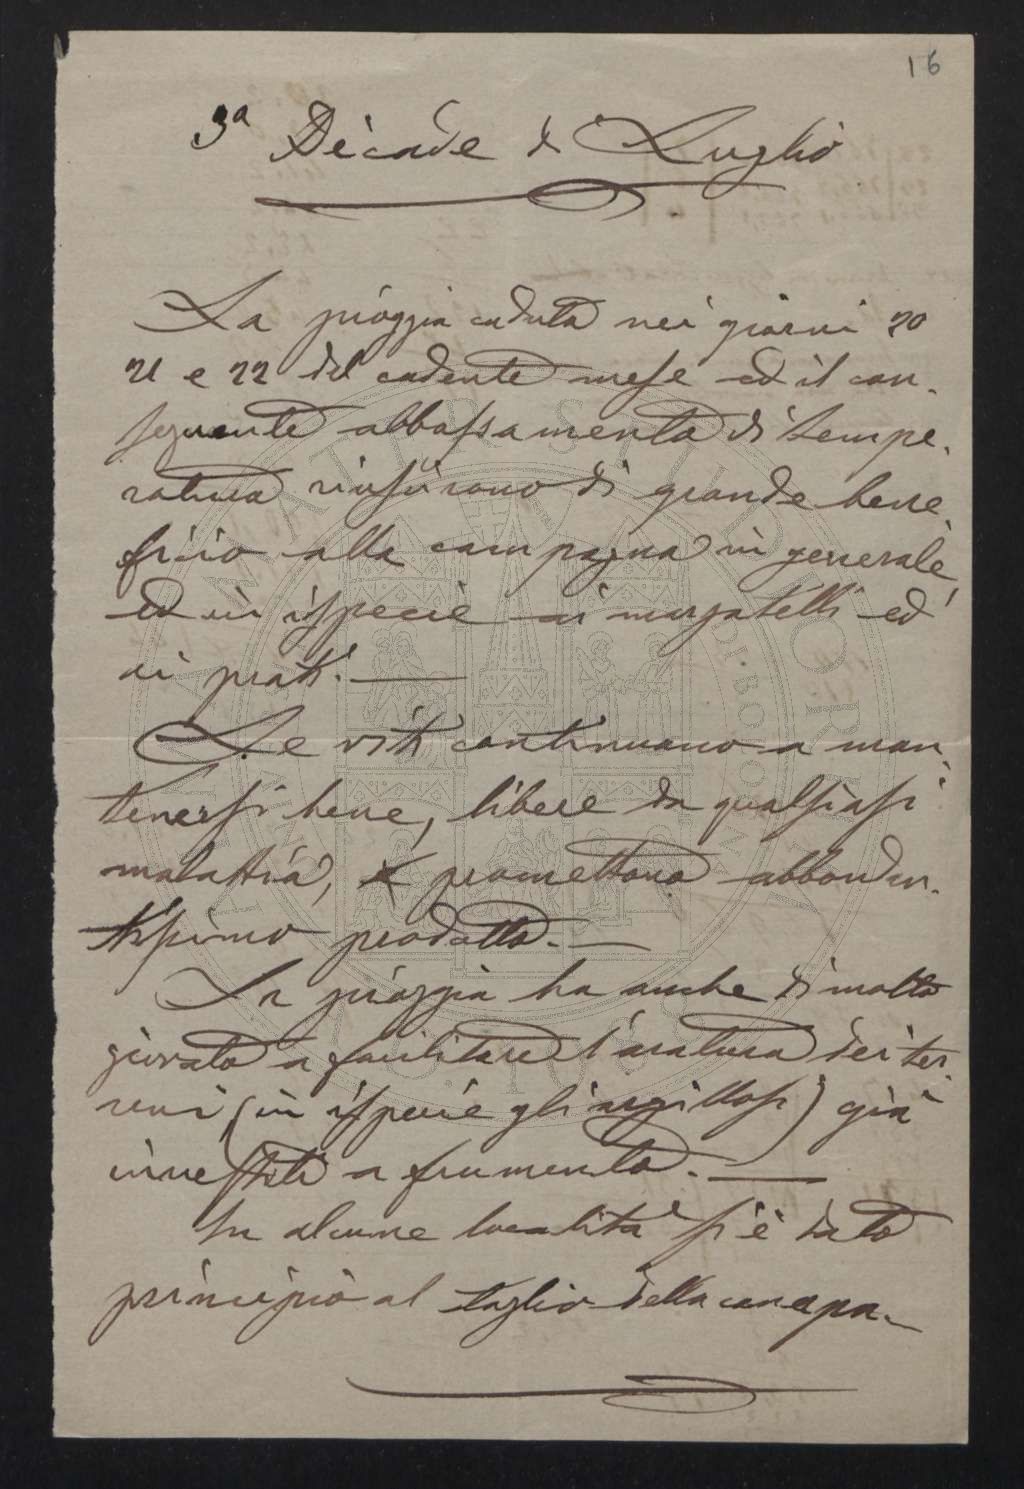 16
3ª Decade di Luglio
La pioggia caduta nei giorni 20
21 e 22 del cadente mese ed il con-
seguente abbassamento di tempe-
ratura riuscirono di grande bene-
ficio alla campagna in generale,
ed in ispecie ai marzatelli ed
ai prati. —
Le viti continuano a man-
tenersi bene, libere da qualsiasi
malattia, e promettono abbondan-
tissimo prodotto. —
La pioggia ha anche di molto
giovato a facilitare l'aratura dei ter-
reni (in ispecie gli argillosi) già
investiti a frumento. —
In alcune località si è dato
principio al taglio della canapa. —
ALMA MATER STUDIORUM
UNIVERSITÀ DI BOLOGNA